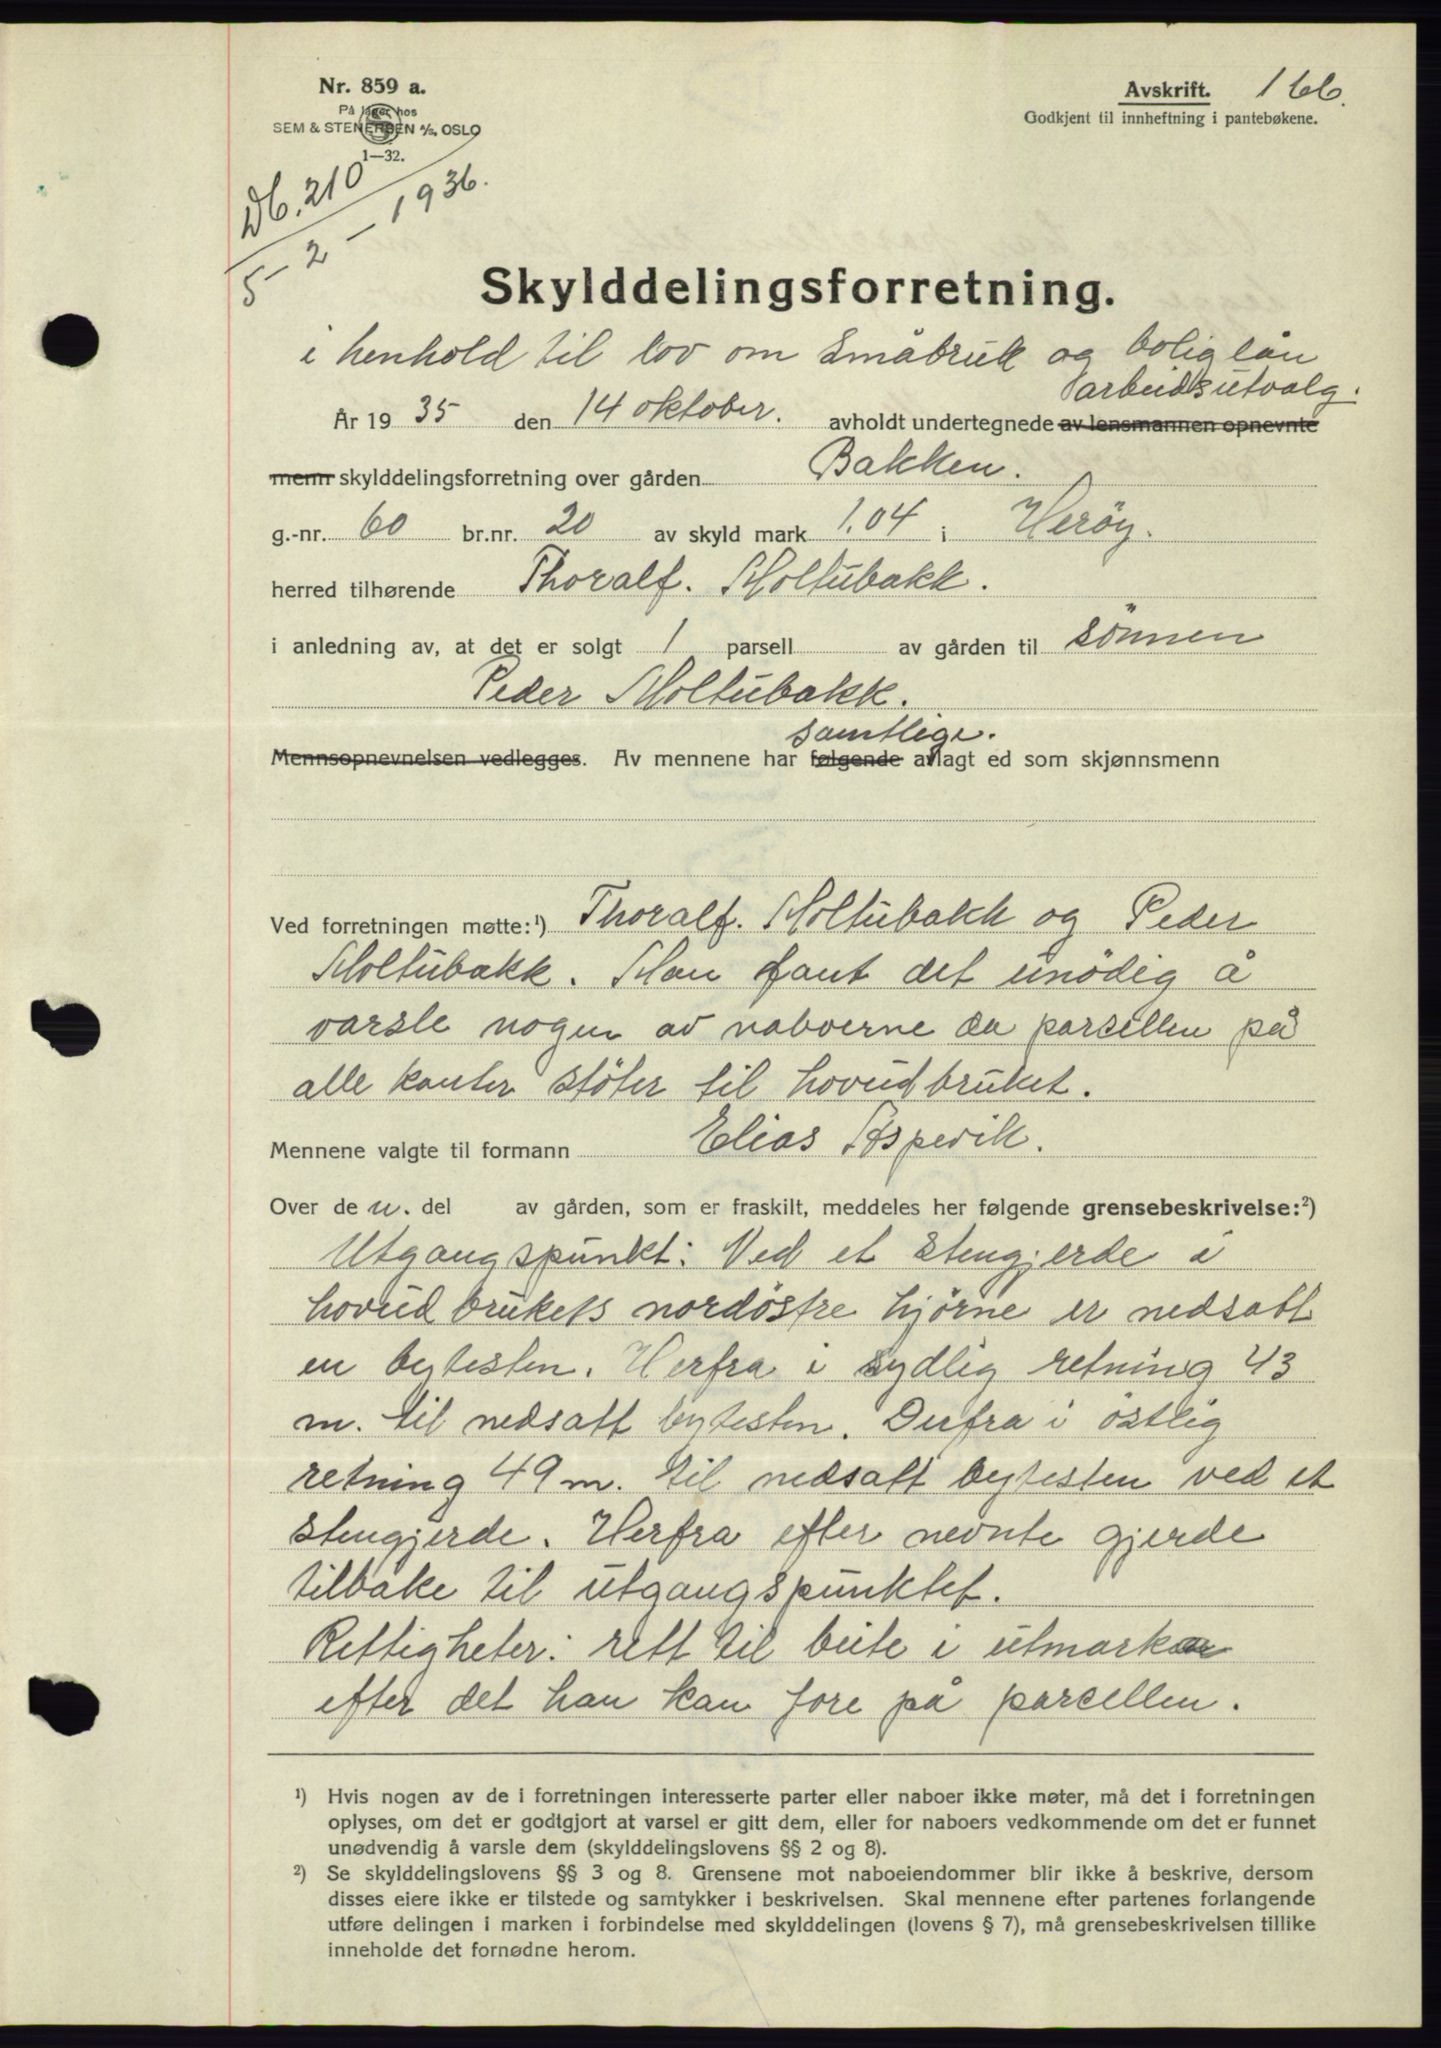 Nr. 859 a.
På lager hos
SEM & STENERSEN A/S, OSLO
1—32.
Avskrift. 166.
Godkjent til innheftning i pantebøkene.
Db. 210
5 - 2 - 1936.
Skylddelingsforretning.
i henhold til lov om Småbruk og boliglån
arbeidsutvalg.
År 1935 den 14 oktober. avholdt undertegnede av lensmannen opnevnte
menn skylddelingsforretning over gården Bakken.
g.-nr. 60 br.nr. 20 av skyld mark 1,04 i Herøy.
herred tilhørende Thoralf. Moltubakk.
i anledning av, at det er solgt 1 parsell av gården til sönnen
Peder Moltubakk.
samtlige.
Mennsopnevnelsen vedlegges. Av mennene har følgende avlagt ed som skjønnsmenn
Ved forretningen møtte:¹) Thoralf. Moltubakk og Peder
Moltubakk. Man fant det unödig å
varsle nogen av naboerne da parcellen på
alle kanter støter til hovudbruket.
Mennene valgte til formann Elias Aspevik.
Over de n. del av gården, som er fraskilt, meddeles her følgende grensebeskrivelse:²)
Utgangspunkt: Ved et stengjerde i
hovudbrukets nordöstre hjörne er nedsatt
en bytesten. Herfra i sydlig retning 43
m. til nedsatt bytesten. Derfra i östlig
retning 49 m. til nedsatt bytesten ved et
stengjerde. Herfra efter nevnte gjerde
tilbake til utgangspunktet.
Rettigheter: rett til beite i utmarken
efter det han kan fore på parcellen.
¹) Hvis nogen av de i forretningen interesserte parter eller naboer ikke møter, må det i forretningen
oplyses, om det er godtgjort at varsel er gitt dem, eller for naboers vedkommende om det er funnet
unødvendig å varsle dem (skylddelingslovens §§ 2 og 8).
²) Se skylddelingslovens §§ 3 og 8. Grensene mot naboeiendommer blir ikke å beskrive, dersom
disses eiere ikke er tilstede og samtykker i beskrivelsen. Skal mennene efter partenes forlangende
utføre delingen i marken i forbindelse med skylddelingen (lovens § 7), må grensebeskrivelsen tillike
inneholde det fornødne herom.